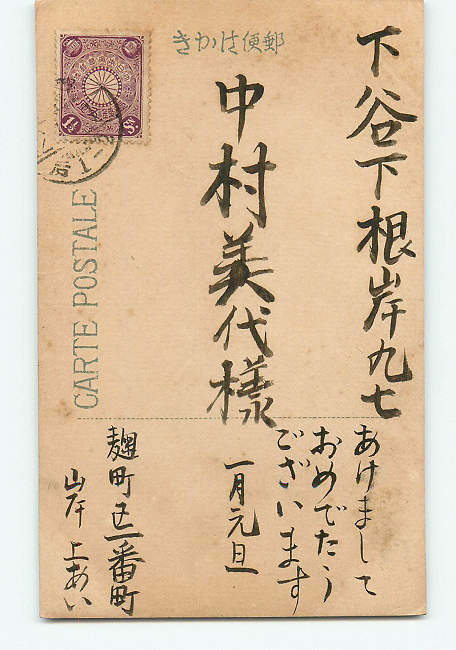 郵便はかき
CARTE POSTALE
下谷下根岸九七
中村美代様
あけまして
おめでたう
ございます
一月元旦
麹町区一番町
山岸 上あい